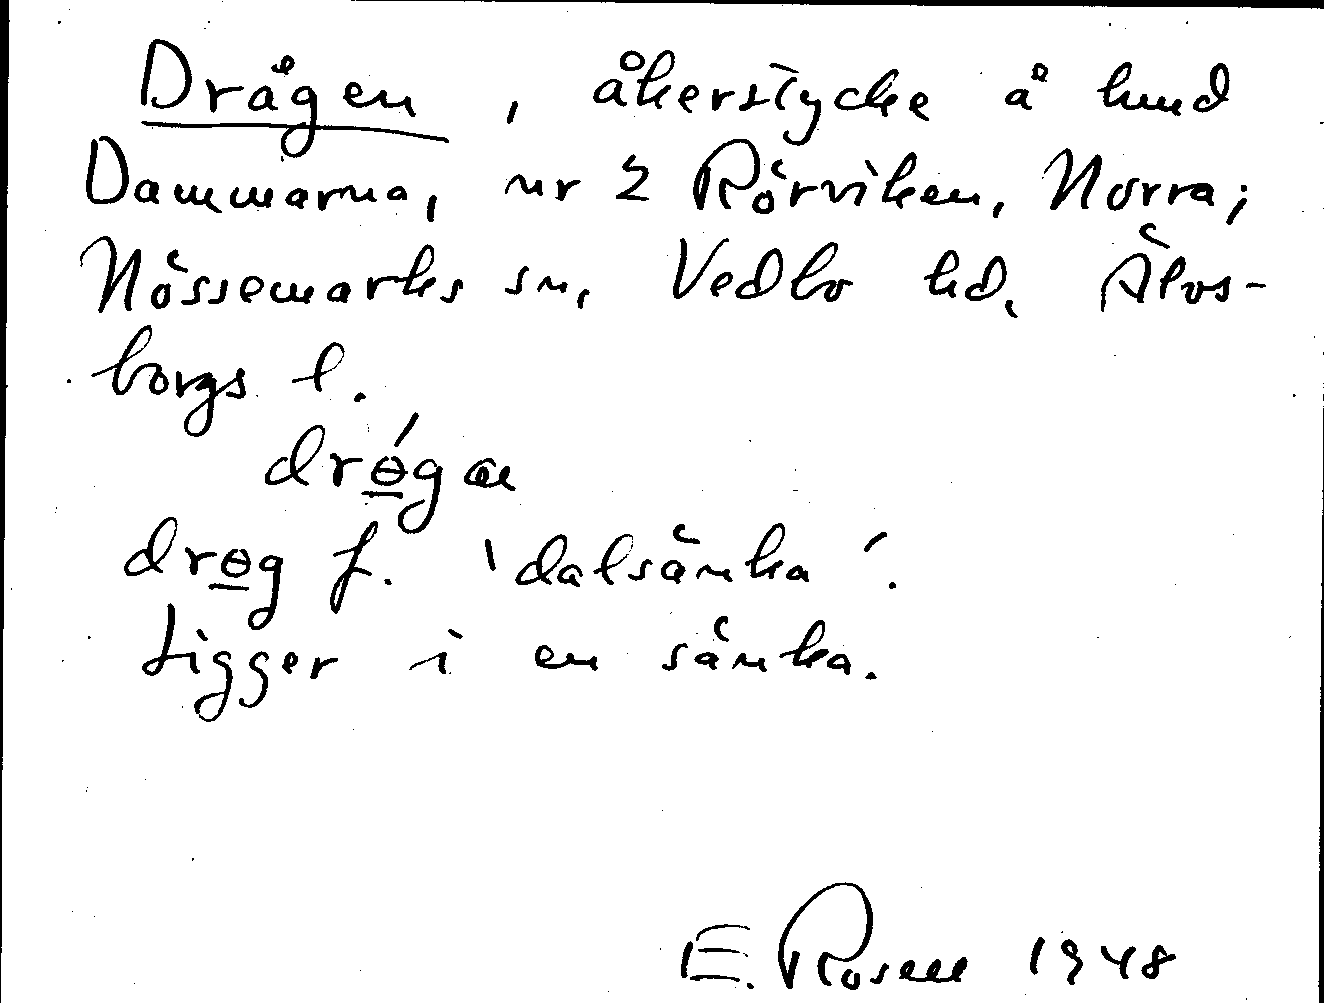 Drågen, åkerstycke å hmd
Dammarna, nr 2 Rörviken, Norra;
Nössemarks sn, Vedbo hd. Älvs-
borgs l.
drɵ́gæ
drɵg f. 'dalsänka'.
Ligger i en sänka.
E. Rosell 1948